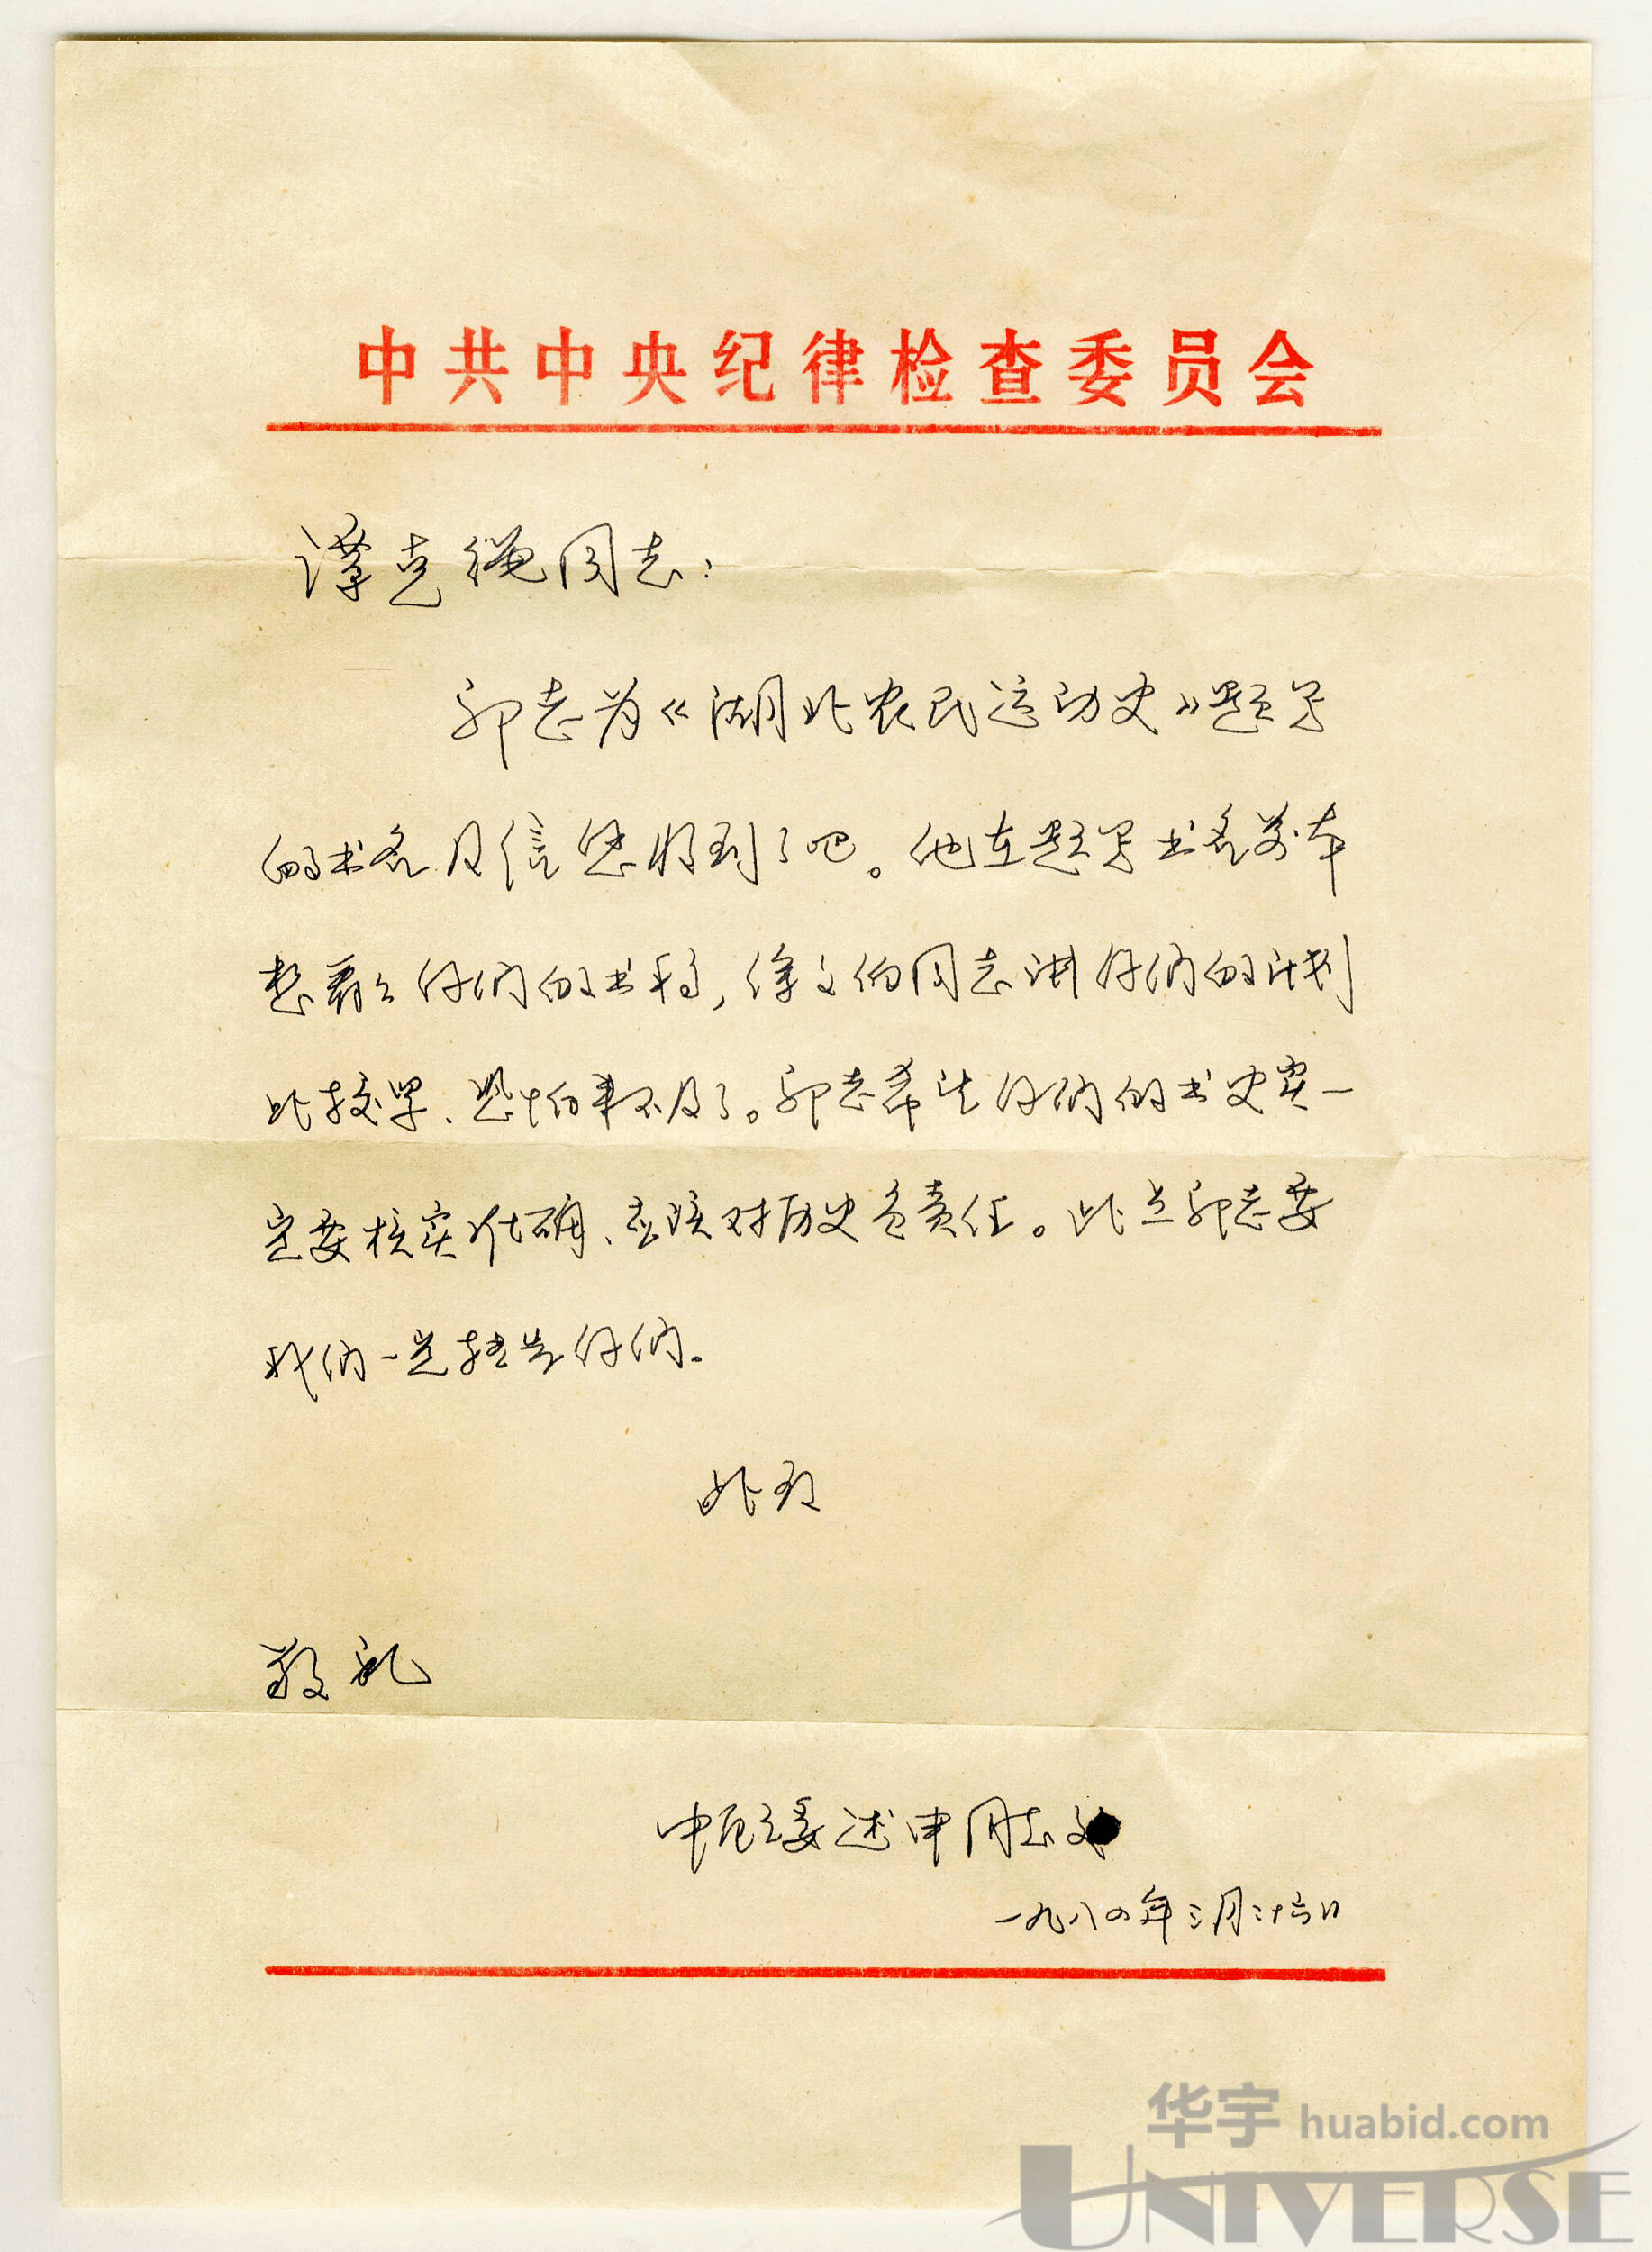 中共中央纪律检查委员会
谭克绳同志：
郭志为《湖北农民运动史》题写
的书名及信您收到了吧。他在题写书名前本
想看看你们的书稿，徐文伯同志讲你们的计划
比较早、恐怕来不及了。郭志希望你们的书史实一
定要核实准确、应该对历史负责任。此点郭志要
我们一定转告你们。
此致
敬礼
中顾委述申同志
一九八四年三月二十六日
华宇 huabid.com
UNIVERSE